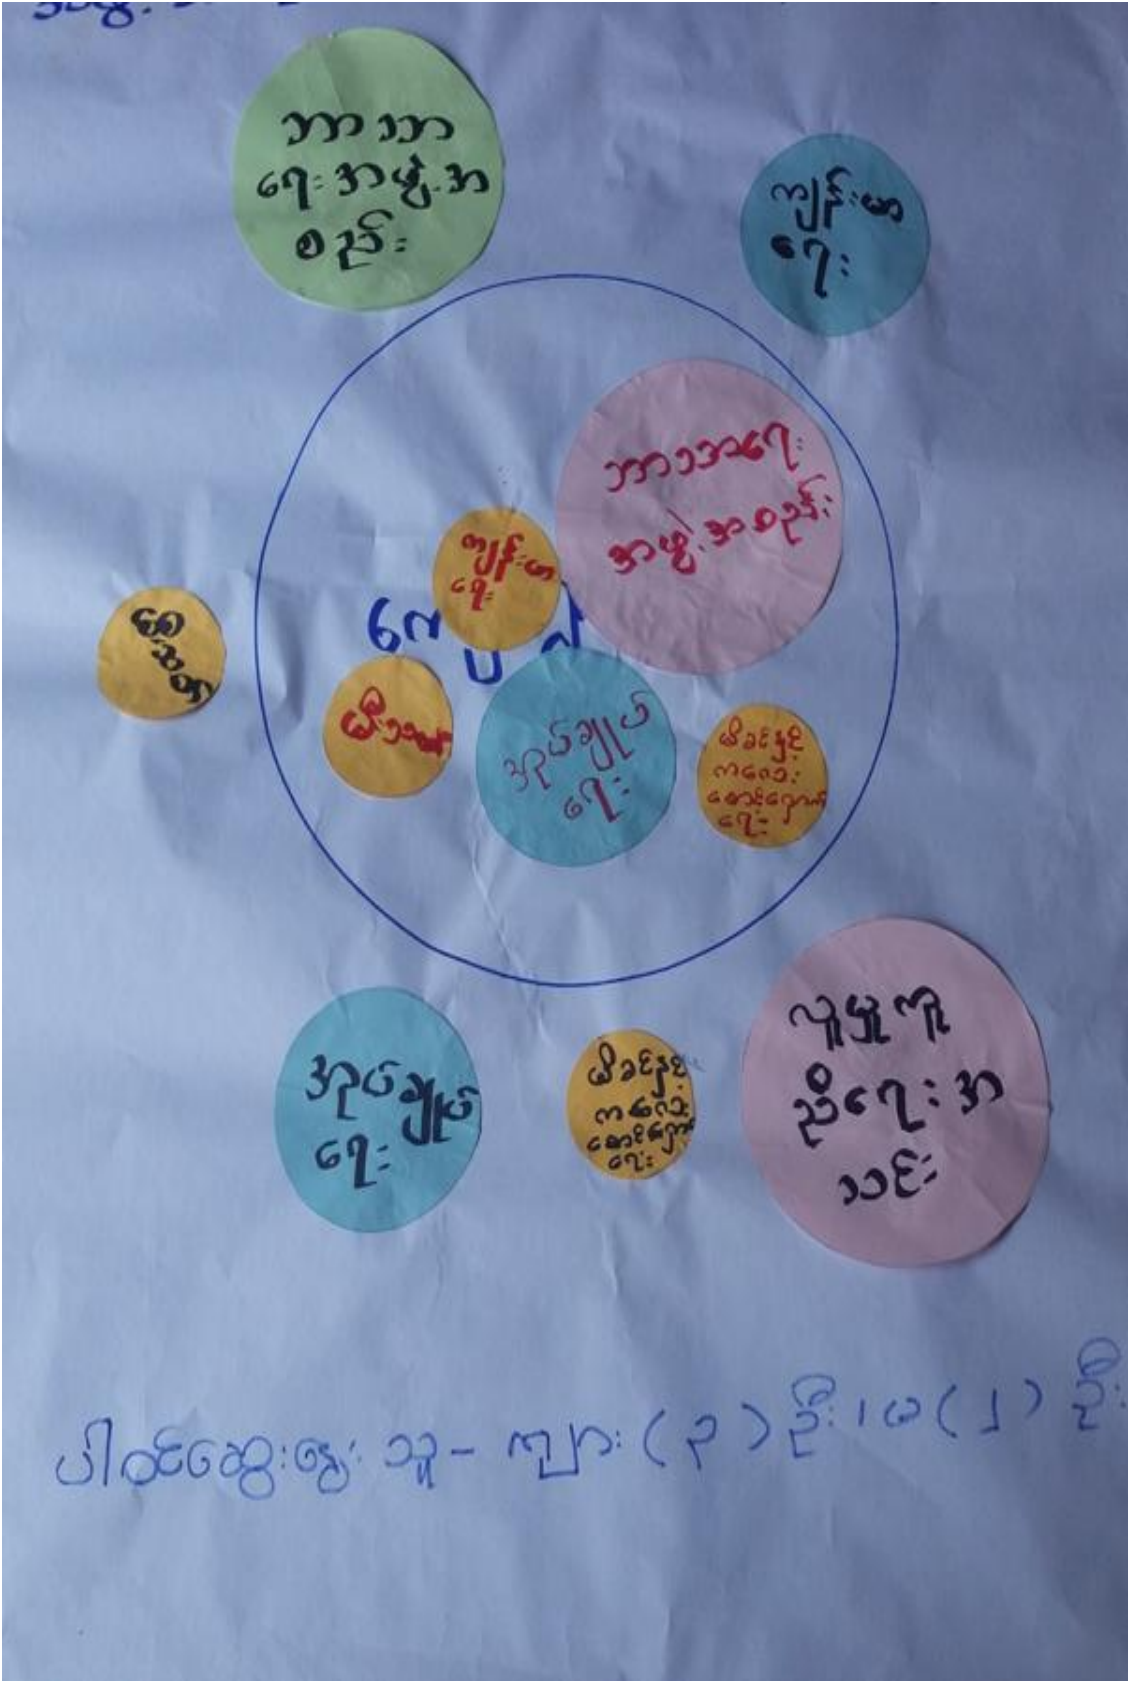 ဘာသာ
ရေးအဖွဲ့အ
စည်း
ကျန်းမာ
ရေး
ဘာသာရေး
အဖွဲ့အစည်း
ကျန်းမာ
ရေး
မီးသတ်
အုပ်ချုပ်
ရေး
မိခင်နှင့်
ကလေး
စောင့်ရှောက်
ရေး
အုပ်ချုပ်
ရေး
မိခင်နှင့်
ကလေး
စောင့်ရှောက်
ရေး
လူမှုကူ
ညီရေးအ
သင်း
ပါဝင်ဆွေးနွေးသူ - ကျား (၃) ဦး၊ မ (၂) ဦး